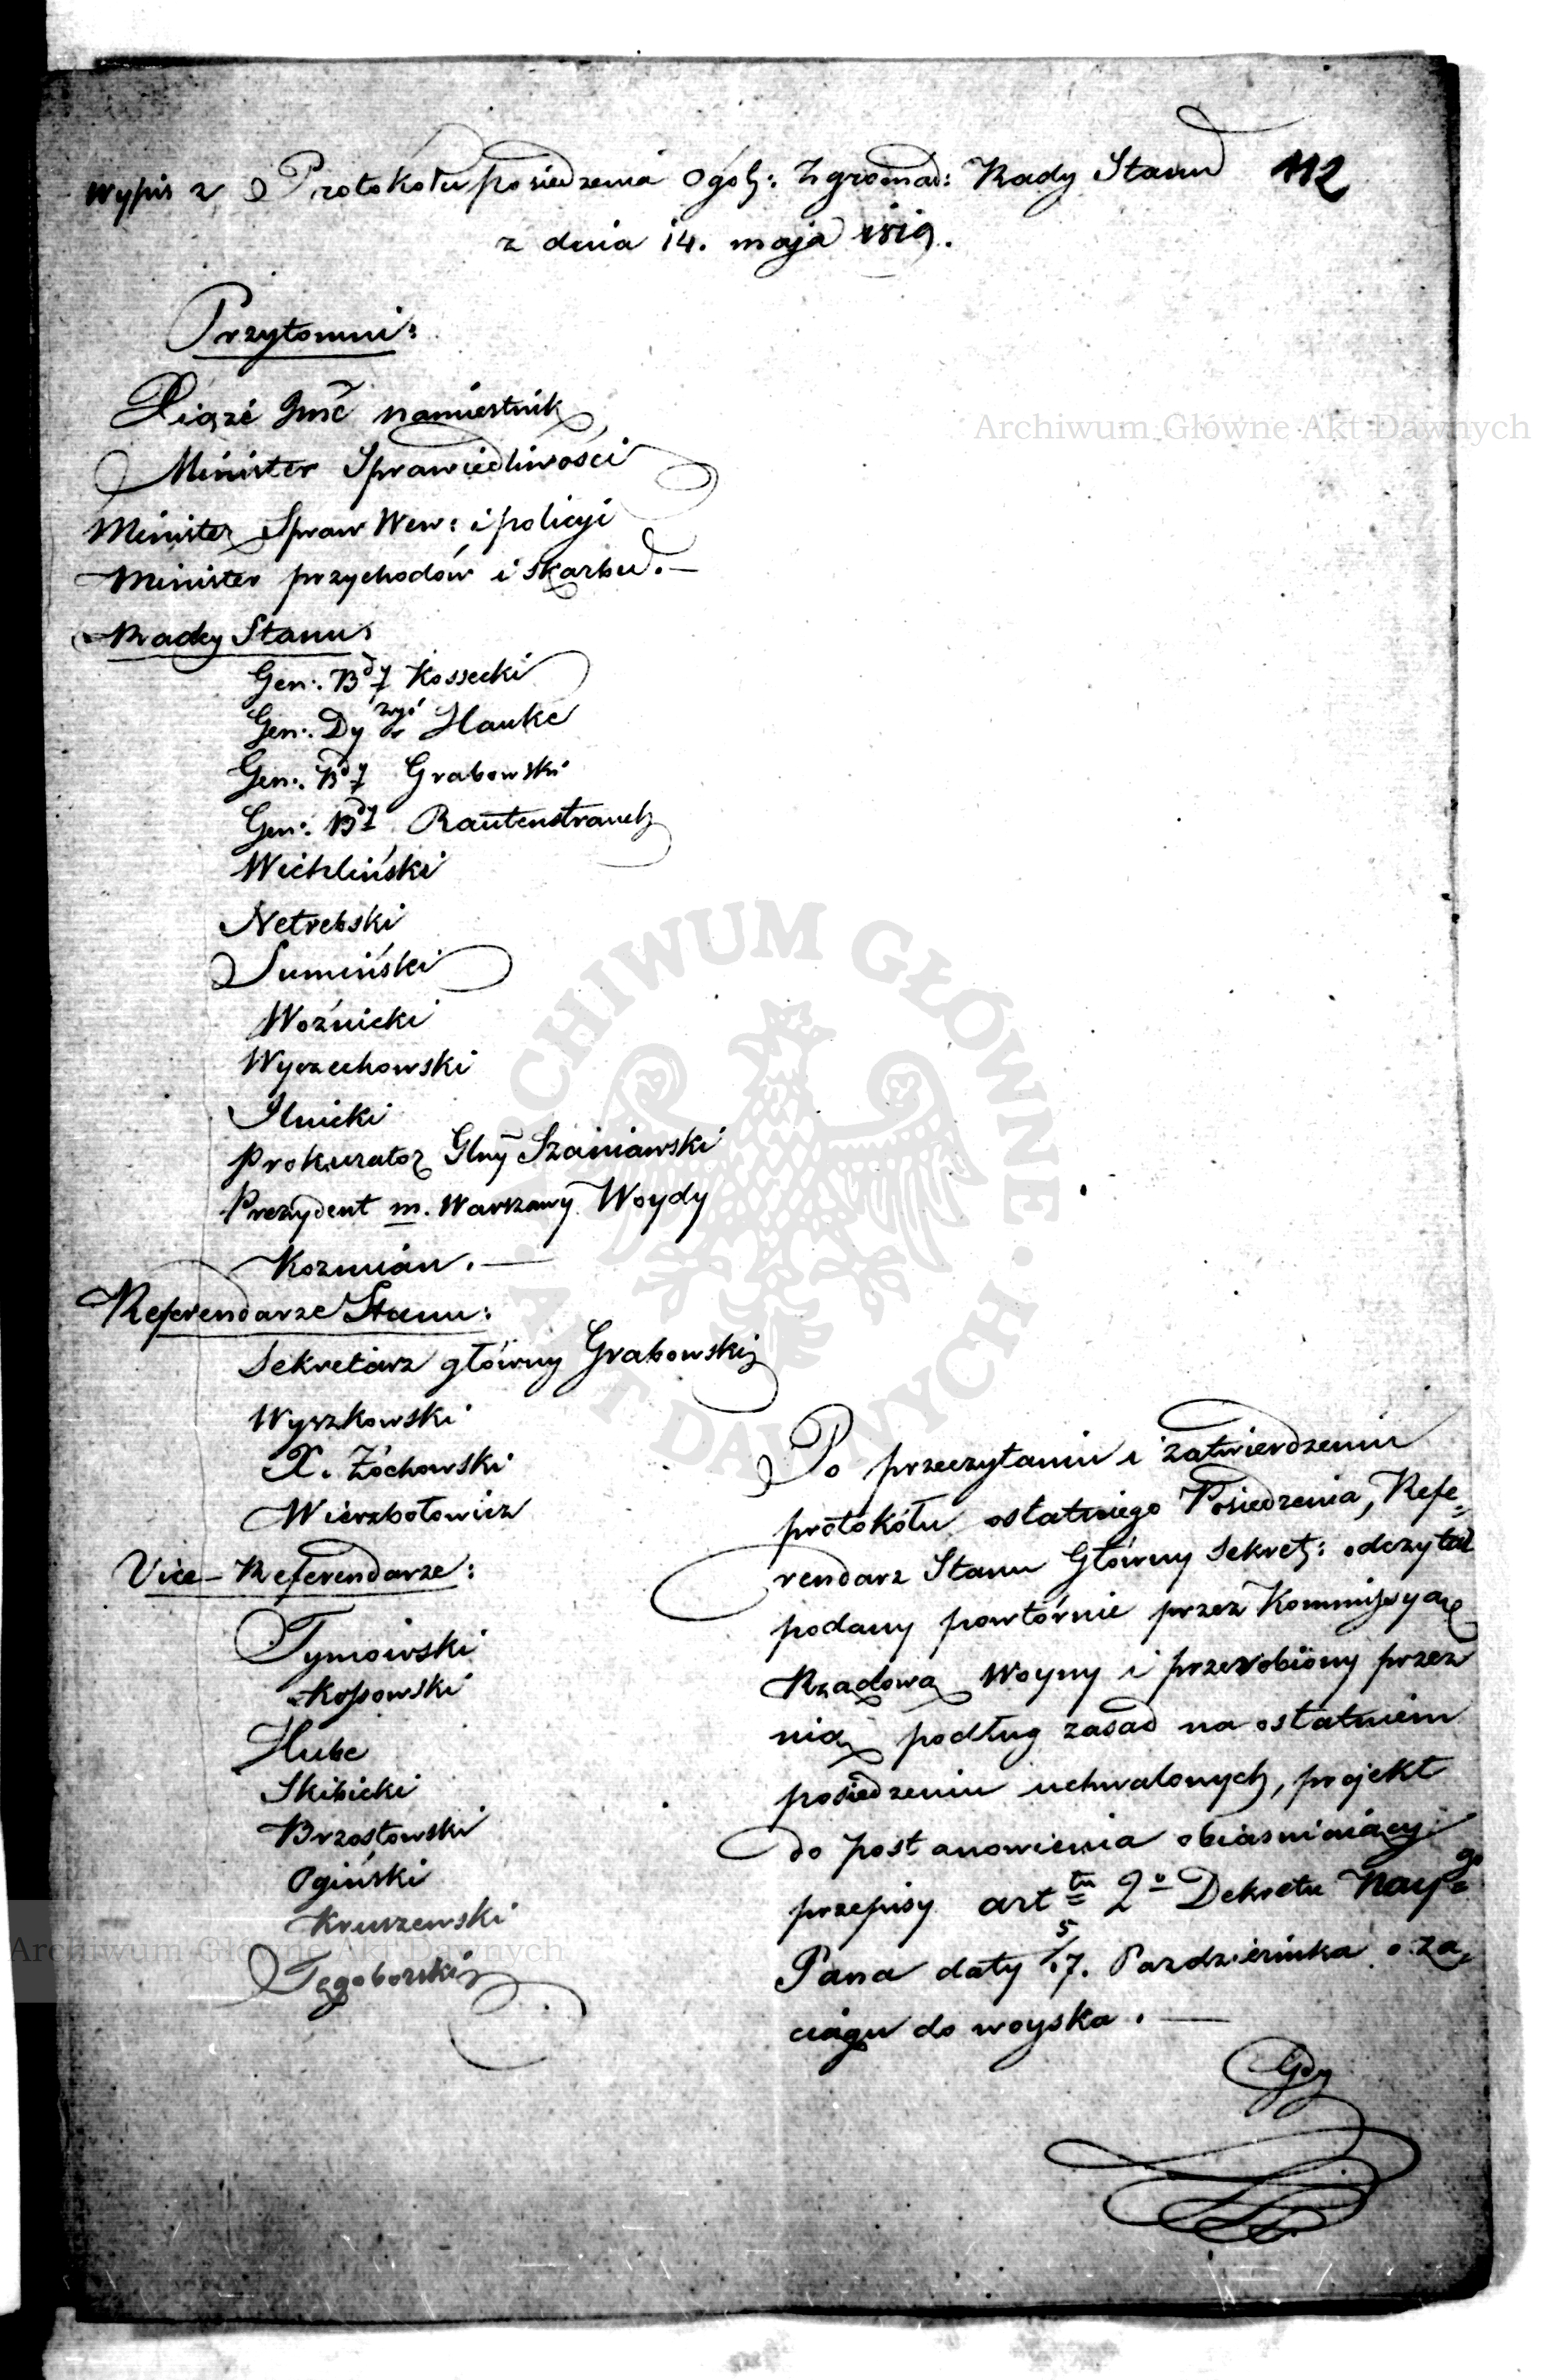 Wypis z Protokołu posiedzenia Ogól: Zgromad: Rady Stanu 112
z dnia 14. maja 1819.
Przytomni:
Xiąże Jmć namiestnik
Minister Sprawiedliwości
Minister Spraw Wew: i policyi
Minister przychodów i skarbu.—
Radcy Stanu:
Gen: Bdy Kossecki
Gen: Dyzyi Hauke
Gen: Bdy Grabowski
Gen: Bdy Rautenstrauch
Wichliński
Netrebski
Sumiński
Woźnicki
Wyczechowski
Ilnicki
Prokurator Glny Szaniawski
Prezydent m. Warszawy Woydy
Kozmian.—
Referendarze Stanu:
Sekretarz główny Grabowski
Wyszkowski
X. Żóchowski
Wierzbołowicz
Vice-Referendarze:
Tymowski
Kossowski
Hube
Skibicki
Brzostowski
Ogiński
Kruszewski
Tęgoborski
Po przeczytaniu i zatwierdzeniu
protokółu ostatniego Posiedzenia, Refe=
rendarz Stanu Główny Sekret: odczytał
podany powtórnie przez Kommissyą
Rządową Woyny i przerobiony przez
nią podług zasad na ostatniem
posiedzeniu uchwalonych, projekt
do postanowienia obiaśniaiący
przepisy arttu 2o Dekretu Naygo
Pana daty 5/17. Pazdziernika o za=
ciągu do woyska.—
Gdy
Archiwum Główne Akt Dawnych
ARCHIWUM GŁÓWNE · AKT DAWNYCH ·
Archiwum Główne Akt Dawnych